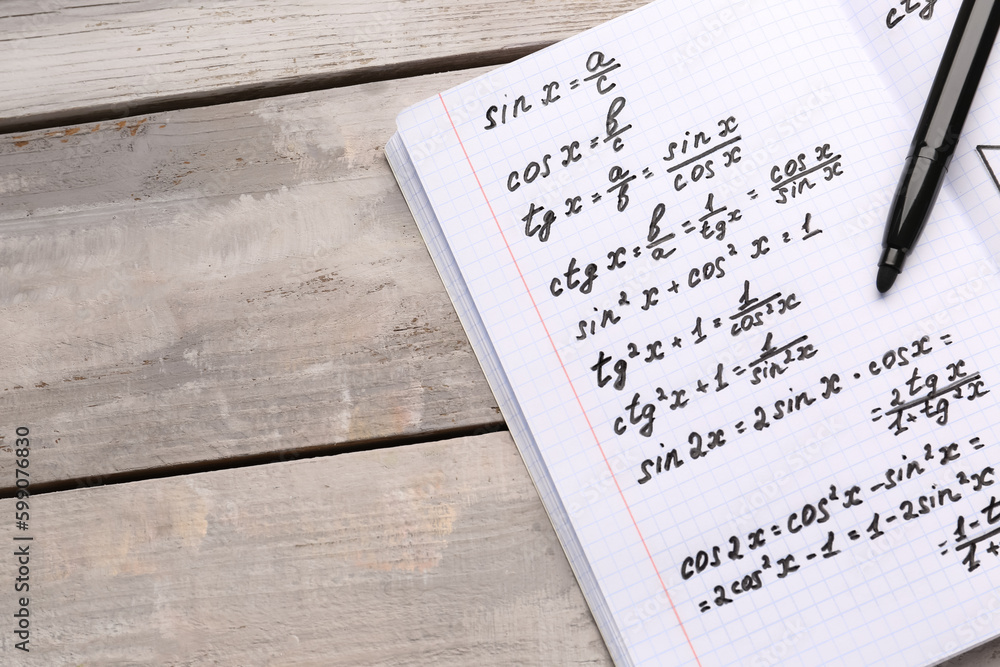 sin x = a/c
cos x = b/c
tg x = a/b = sin x/cos x
ctg x = b/a = 1/tg x = cos x/sin x
sin² x + cos² x = 1
tg² x + 1 = 1/cos² x
ctg² x + 1 = 1/sin² x
sin 2x = 2 sin x · cos x =
= 2 tg x/1 + tg² x
cos 2x = cos² x - sin² x =
= 2 cos² x - 1 = 1 - 2 sin² x
= 1 - t/1 +
ctg
Adobe Stock | 599076830